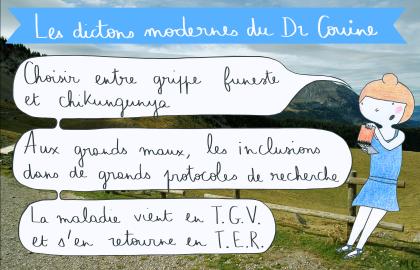 Les dictons modernes du Dr Couine
Choisir entre grippe funeste
et chikungunya
Aux grands maux, les inclusions
dans de grands protocoles de recherche
La maladie vient en T.G.V.
et s'en retourne en T.E.R.